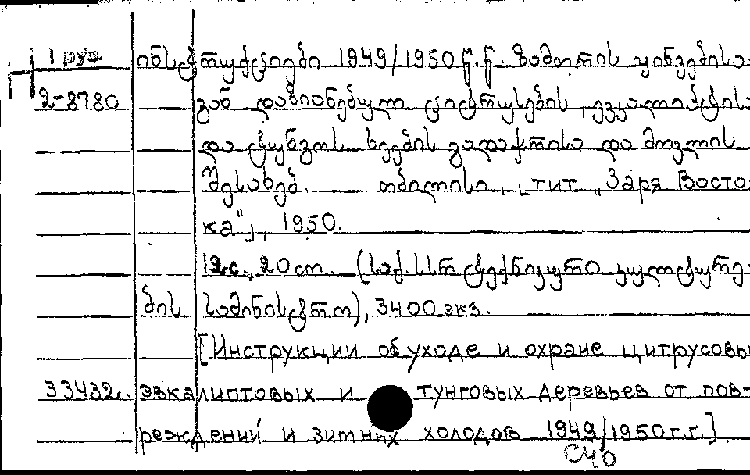 1 груз ინსტრუქციები 1949/1950 წ.წ. ზამთრის ყინვებისა-
2-8780 გან დაზიანებული ციტრუსების, ევკალიპტისა
და ტუნგოს ხეების გადაჭრისა და მოვლის
შესახებ. თბილისი, „тип. „Заря Восто-
ка“, 1950.
12 с. 20 см. (საქ. სსრ ტექნიკური კულტურე-
ბის სამინისტრო), 3400 экз.
[Инструкции об уходе и охране цитрусовых
33432. эвкалиптовых и тунговых деревьев от пов-
реждений и зимних холодов 1949/1950 г.г.]
С40